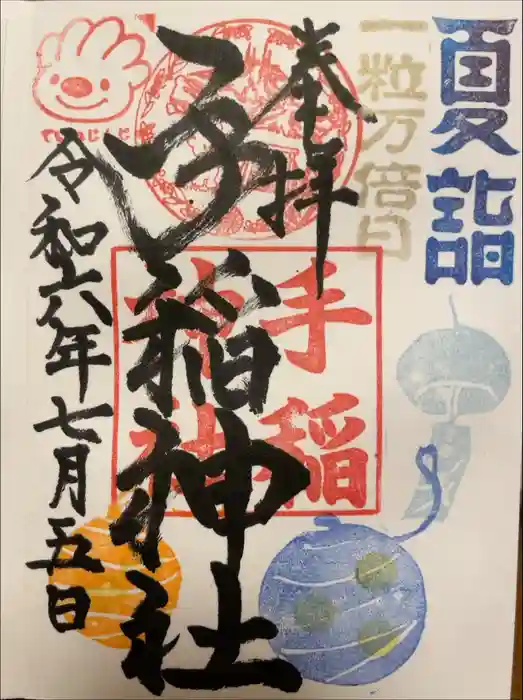 夏詣
一粒万倍日
奉拝
手稲神社
手稲
神社
令和六年七月五日
ていねじんじゃ